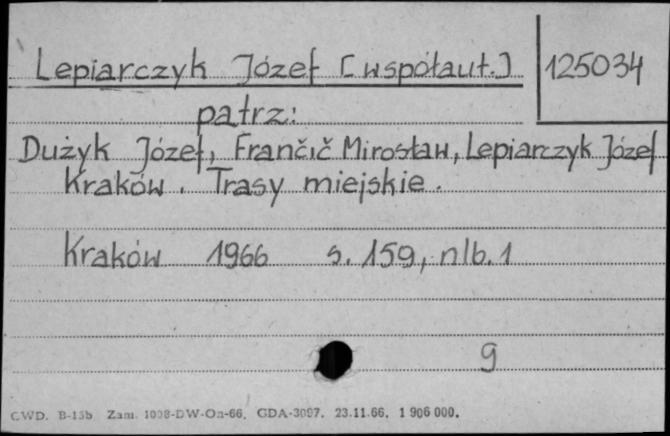 Lepiarczyk Józef [współaut.] 125034
patrz:
Dużyk Józef, Frančič Mirosław, Lepiarczyk Józef
Kraków. Trasy miejskie.
Kraków 1966 s. 159, nlb. 1
9
CWD. B-15b Zam. 1008-DW-On-66. GDA-3097. 23.11.66. 1 906 000.